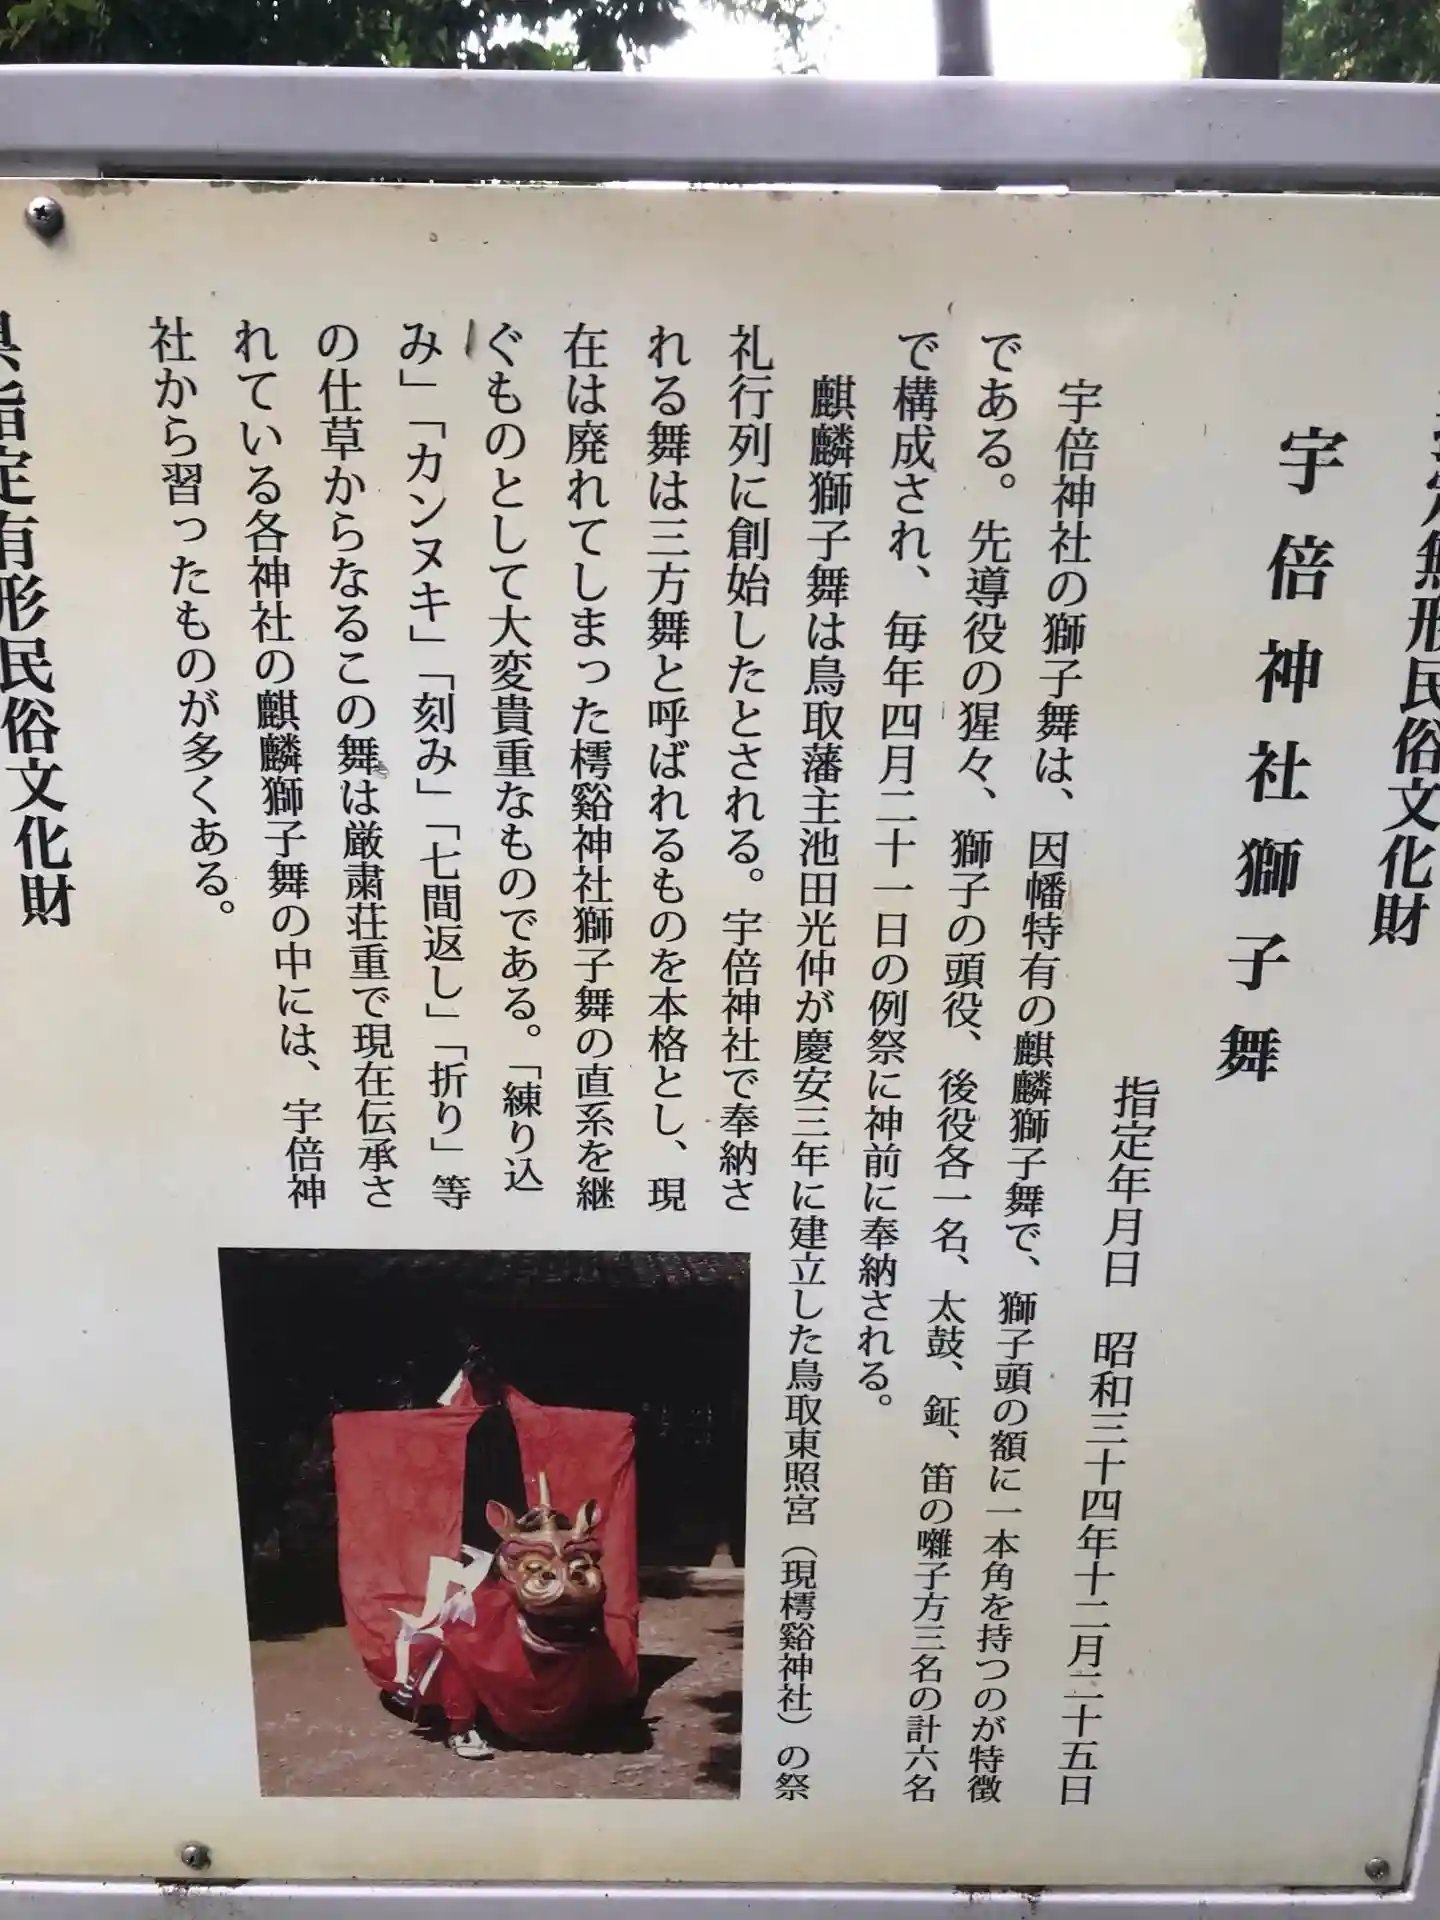 無形民俗文化財
宇倍神社獅子舞
指定年月日　昭和三十四年十二月二十五日
宇倍神社の獅子舞は、因幡特有の麒麟獅子舞で、獅子頭の額に一本角を持つのが特徴
である。先導役の猩々、獅子の頭役、後役各一名、太鼓、鉦、笛の囃子方三名の計六名
で構成され、毎年四月二十一日の例祭に神前に奉納される。
麒麟獅子舞は鳥取藩主池田光仲が慶安三年に建立した鳥取東照宮（現樗谿神社）の祭
礼行列に創始したとされる。宇倍神社で奉納さ
れる舞は三方舞と呼ばれるものを本格とし、現
在は廃れてしまった樗谿神社獅子舞の直系を継
ぐものとして大変貴重なものである。「練り込
み」「カンヌキ」「刻み」「七間返し」「折り」等
の仕草からなるこの舞は厳粛荘重で現在伝承さ
れている各神社の麒麟獅子舞の中には、宇倍神
社から習ったものが多くある。
指定有形民俗文化財